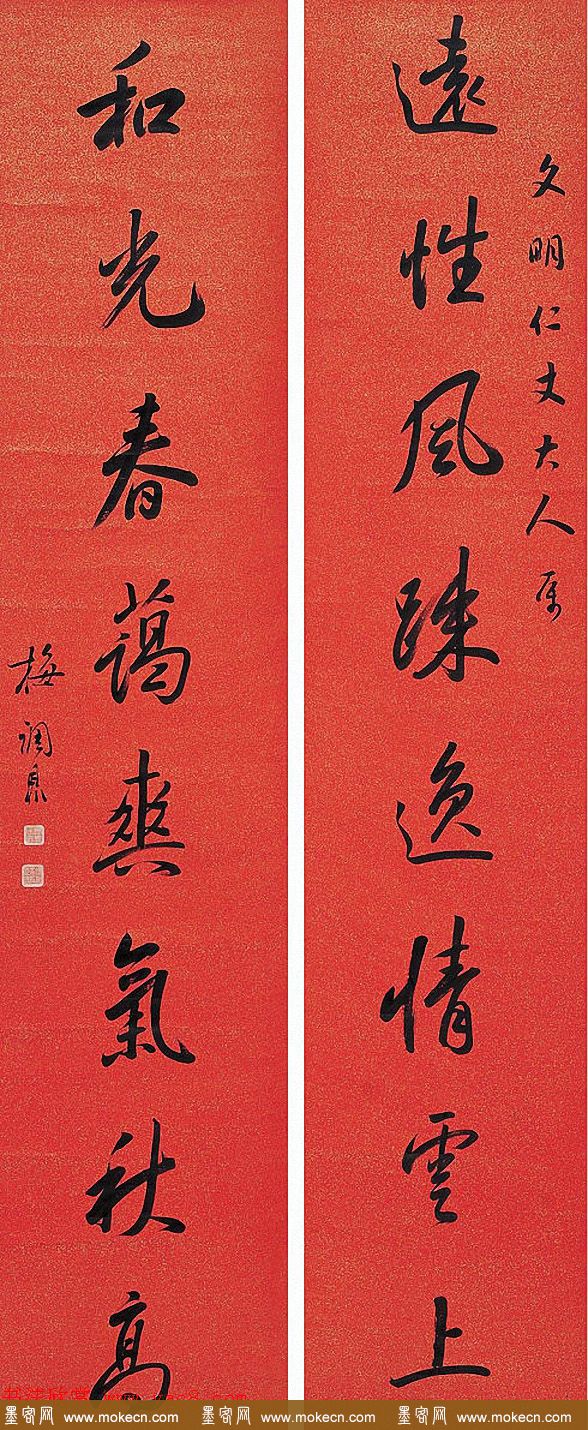 文明仁丈大人属
遠性風疎逸情雲上
和光春藹爽氣秋高
梅调鼎
墨客网 www.mokecn.com 墨客网 www.mokecn.com 墨客网 www.mokecn.com